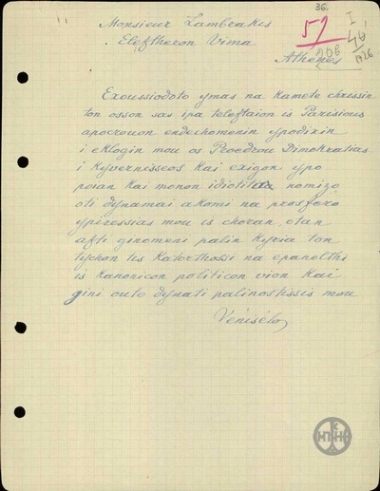 36.
Monsieur Lambrakis
Eleftheron Vima
Athènes
Exoussiodoto ymas na kamete chrissin
ton osson sas ipa teleftaion is Parisious
apocrouon endechomenin ypodixin
i eklogin mou os Proedrou Dimokratias
i Kyvernisseos kai exigon ypo
poian kai monon idiotita nomizo
oti dynamai akomi na prosfero
ypiressias mou is choran, otan
afti ginomeni palin Kyria ton
tychon tis Katorthossi na epanelthi
is kanonicon politicon vion kai
gini outo dynati palinostissis mou
Venisélos